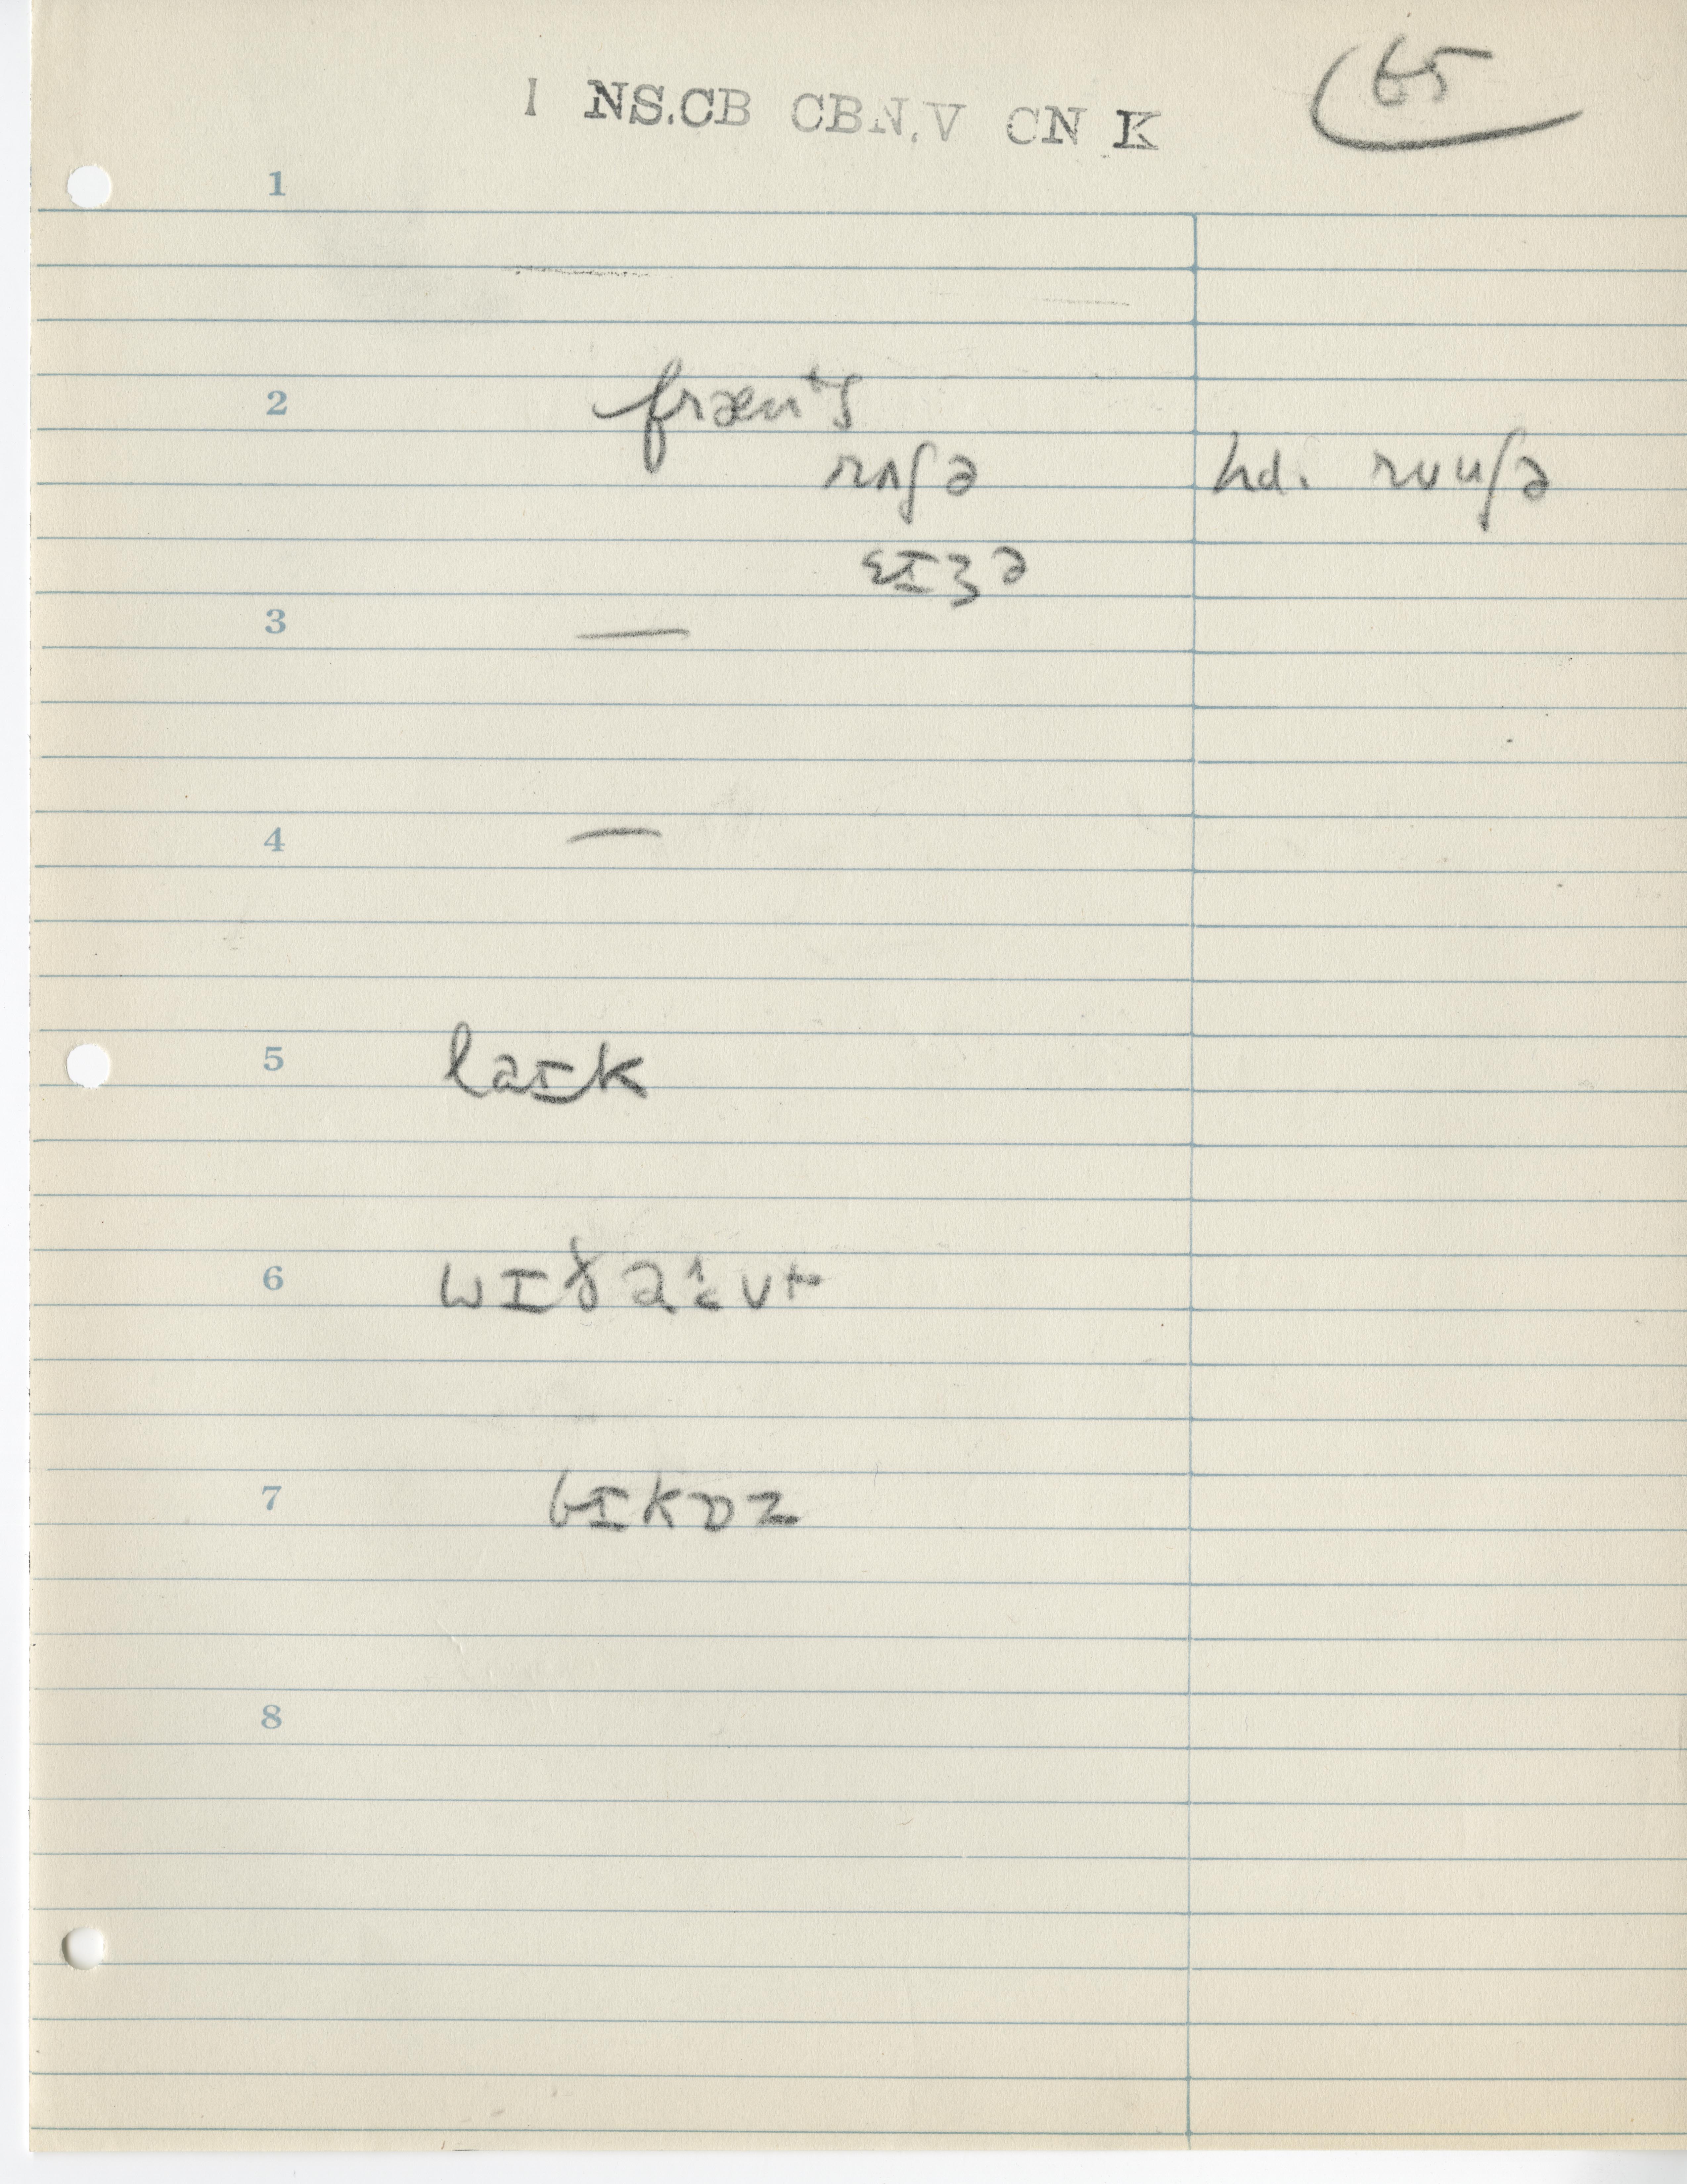 I NS.CB CBN.V CN K
65
1
2 fræntʃ
rʌʃə hd. rʊuʃə
ɛɪʒə
3 —
4 —
5 laɪk
6
7 bɪkɒz
8